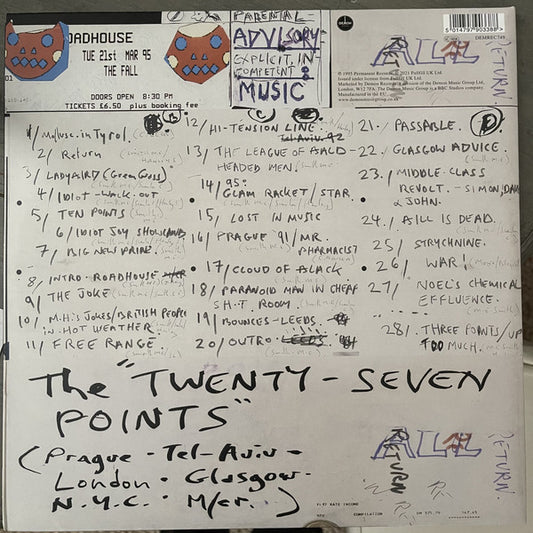 ROADHOUSE
TUE 21st MAR 95
THE FALL
DOORS OPEN 8:30 PM
TICKETS £6.50 plus booking fee
PARENTAL
ADVISORY
EXPLICIT, IN-
COMPETENT &
MUSIC
DEMREC749
5 014797 903388
RETURN.
© 1995 Permanent Records
Marketed by Demon Records
London, W12 7FA. The Demon Music Group is a BBC Studios company.
Manufactured in the EU.
www.demonmusicgroup.co.uk
1/ Mollusc in Tyrol.
2/ Return
3/ LADYBIRD (Green Grass)
4/ IDIOT - WALK-OUT
5/ TEN POINTS
6/ IDIOT JOY SHOWLAND
7/ BIG NEW PRINZ.
8/ INTRO - ROADHOUSE
9/ THE JOKE
10/ M.H.'S JOKES/BRITISH PEOPLE
IN HOT WEATHER
11/ FREE RANGE
12/ HI-TENSION LINE.
Tel-Aviv. 92
13/ THE LEAGUE OF BALD-
HEADED MEN
14/ 95:
GLAM RACKET / STAR.
15/ LOST IN MUSIC
16/ PRAGUE '91/MR.
PHARMACIST
17/ CLOUD OF BLACK
18/ PARANOID MAN IN CHEAP
SH-T ROOM.
19/ BOUNCES-LEEDS.
20/ OUTRO
21. PASSABLE.
22. GLASGOW ADVICE.
23. MIDDLE-CLASS
REVOLT. - SIMON, DAVE
& JOHN.
24. BILL IS DEAD.
25/ STRYCHNINE.
26/ WAR!
27/ NOEL'S CHEMICAL
EFFLUENCE.
28/ THREE POINTS/UP
TOO MUCH.
The "TWENTY-SEVEN
POINTS"
(Prague - Tel-Aviv -
London · Glasgow ·
N.Y.C. · M/cr...)
RETURN
RETURN.
COMPILATION